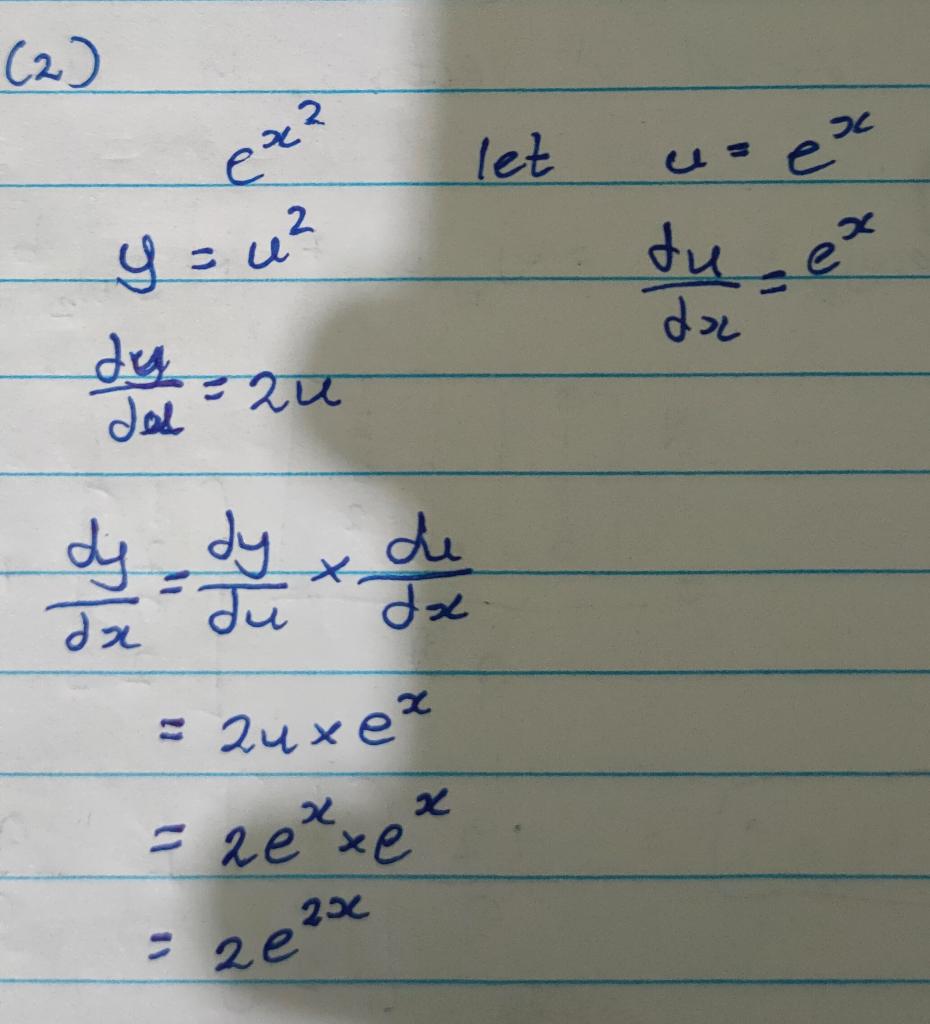 (2)
e^{x^2} let u = e^x
y = u^2 du/dx = e^x
dy/dx = 2u
dy/dx = dy/du × du/dx
= 2u × e^x
= 2e^x × e^x
= 2e^{2x}